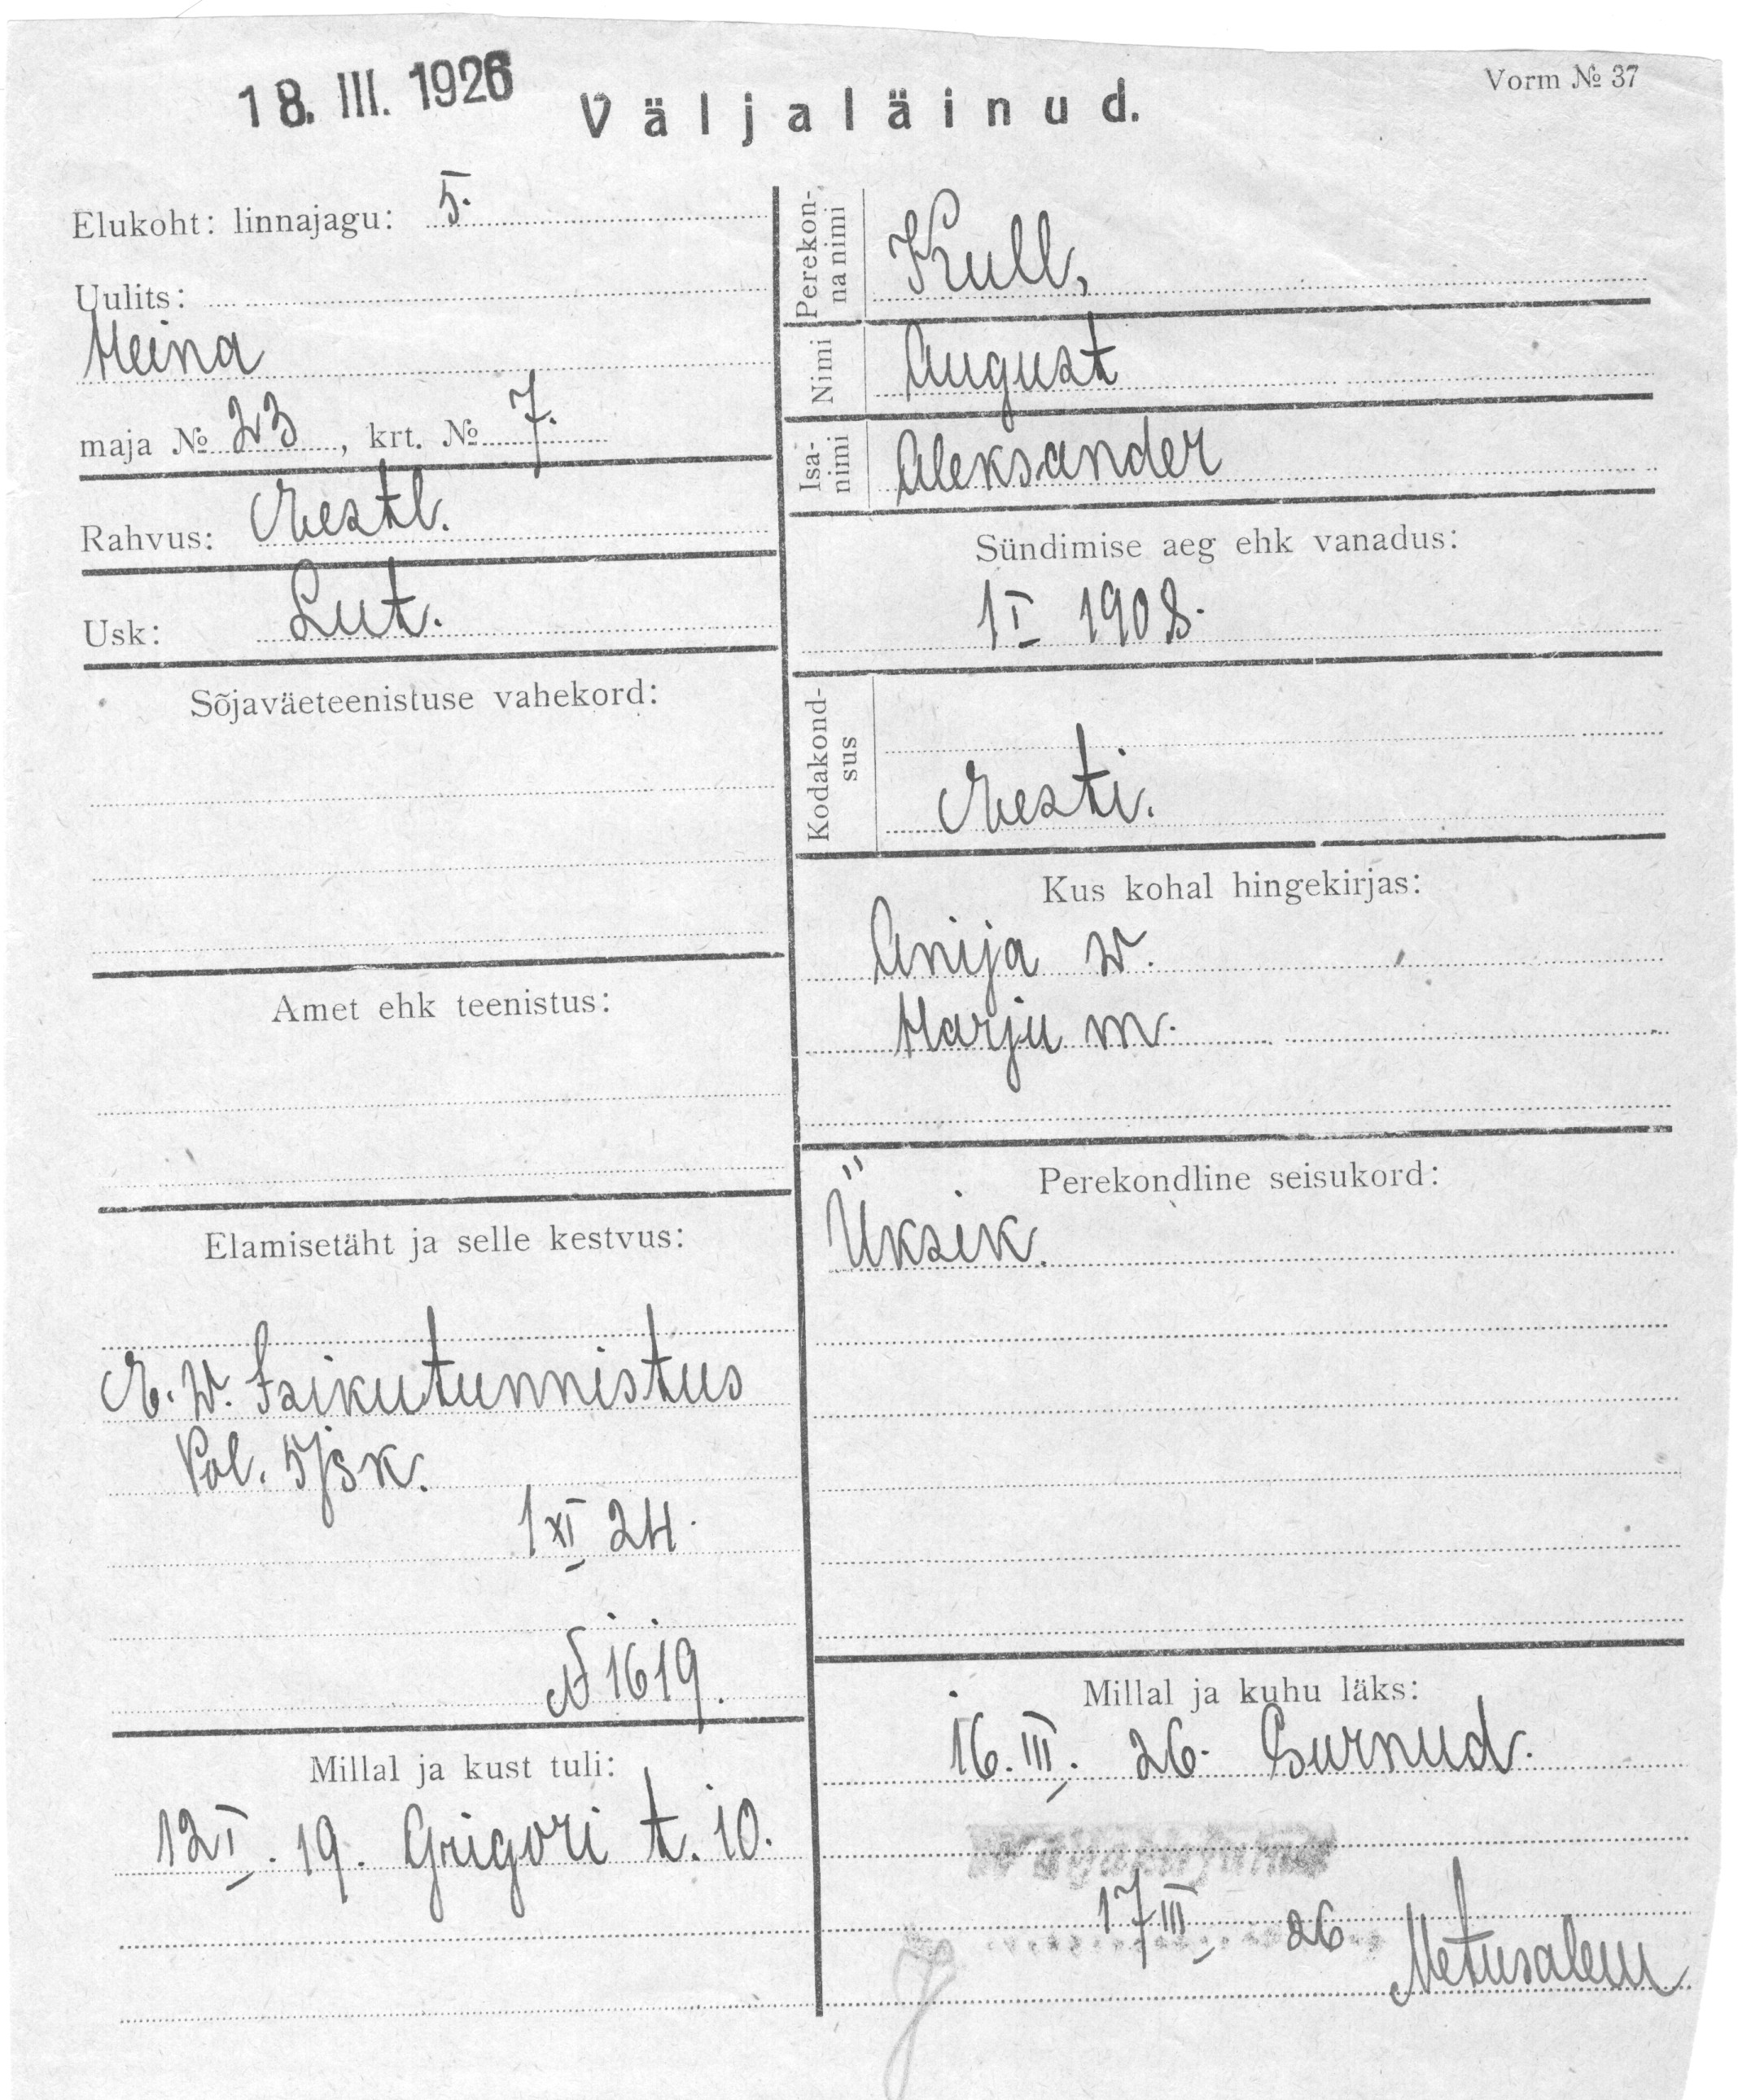 18. III. 1926
Väljaläinud.
Vorm № 37
Elukoht: linnajagu: 5.
Uulits:
Heina
maja № 23, krt. № 7.
Rahvus: Eestl.
Usk: Lut.
Sõjaväeteenistuse vahekord:
Amet ehk teenistus:
Elamisetäht ja selle kestvus:
E. W. Isikutunnistus
Pol. 5 jsk.
1 XI 24.
N 1619.
Millal ja kust tuli:
12 I. 19. Grigori t. 10.
Perekonnanimi
Kull,
Nimi
August
Isanimi
Aleksander
Sündimise aeg ehk vanadus:
1 I 1908.
Kodakondsus
Eesti.
Kus kohal hingekirjas:
Anija w.
Harju m.
Perekondline seisukord:
Üksik.
Millal ja kuhu läks:
16. III. 26. Surnud.
17 III 26
Metusalem